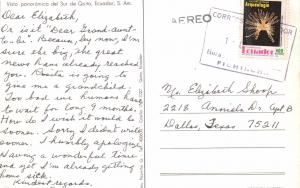 Vista panorámica del Sur de Quito, Ecuador, S. Am.
Dear Elizabeth,
Or is it "Dear Grand-aunt-
to-be". Because, by now, I'm
sure the big, the great
news have already reached
you. is going to
give me a grandchild.
Too bad we humans have
to wait for long 9 months.
How do I wish it would be
sooner. Sorry I didn't write
sooner. I humbly apologize.
Having a wonderful time
and yet I'm already getting
home sick.
Kindest regards.
AEREO
CORREO
Ecuador
PICHINCHA
Elizabeth Shoop
2218 Annis Dr. Apt B
Dallas, Texas 75211